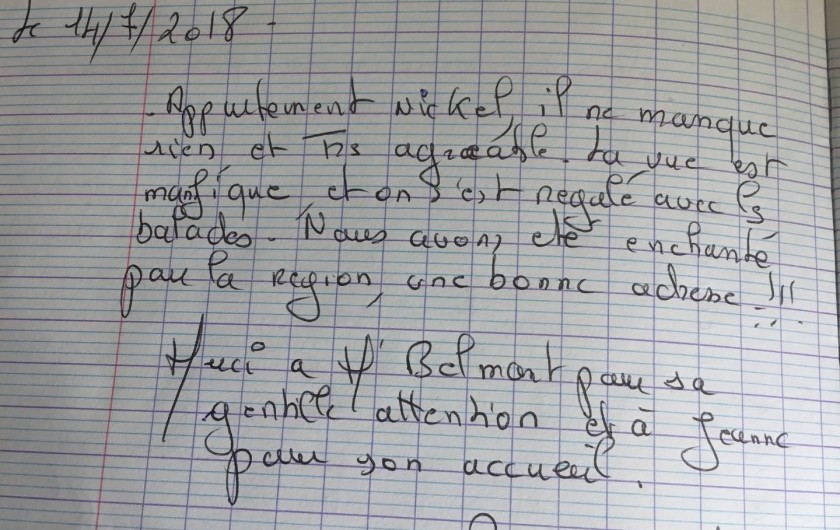 Le 14/7/2018 -
- Appartement nickel, il ne manque
rien et trs agréable. La vue est
manfique et on s'est régalé avec ls
balades. Nous avons été enchanté
par la région, une bonne adresse !!!
Merci a Belmont pour sa
gentille attention et à Jeanne
pour son accueil.